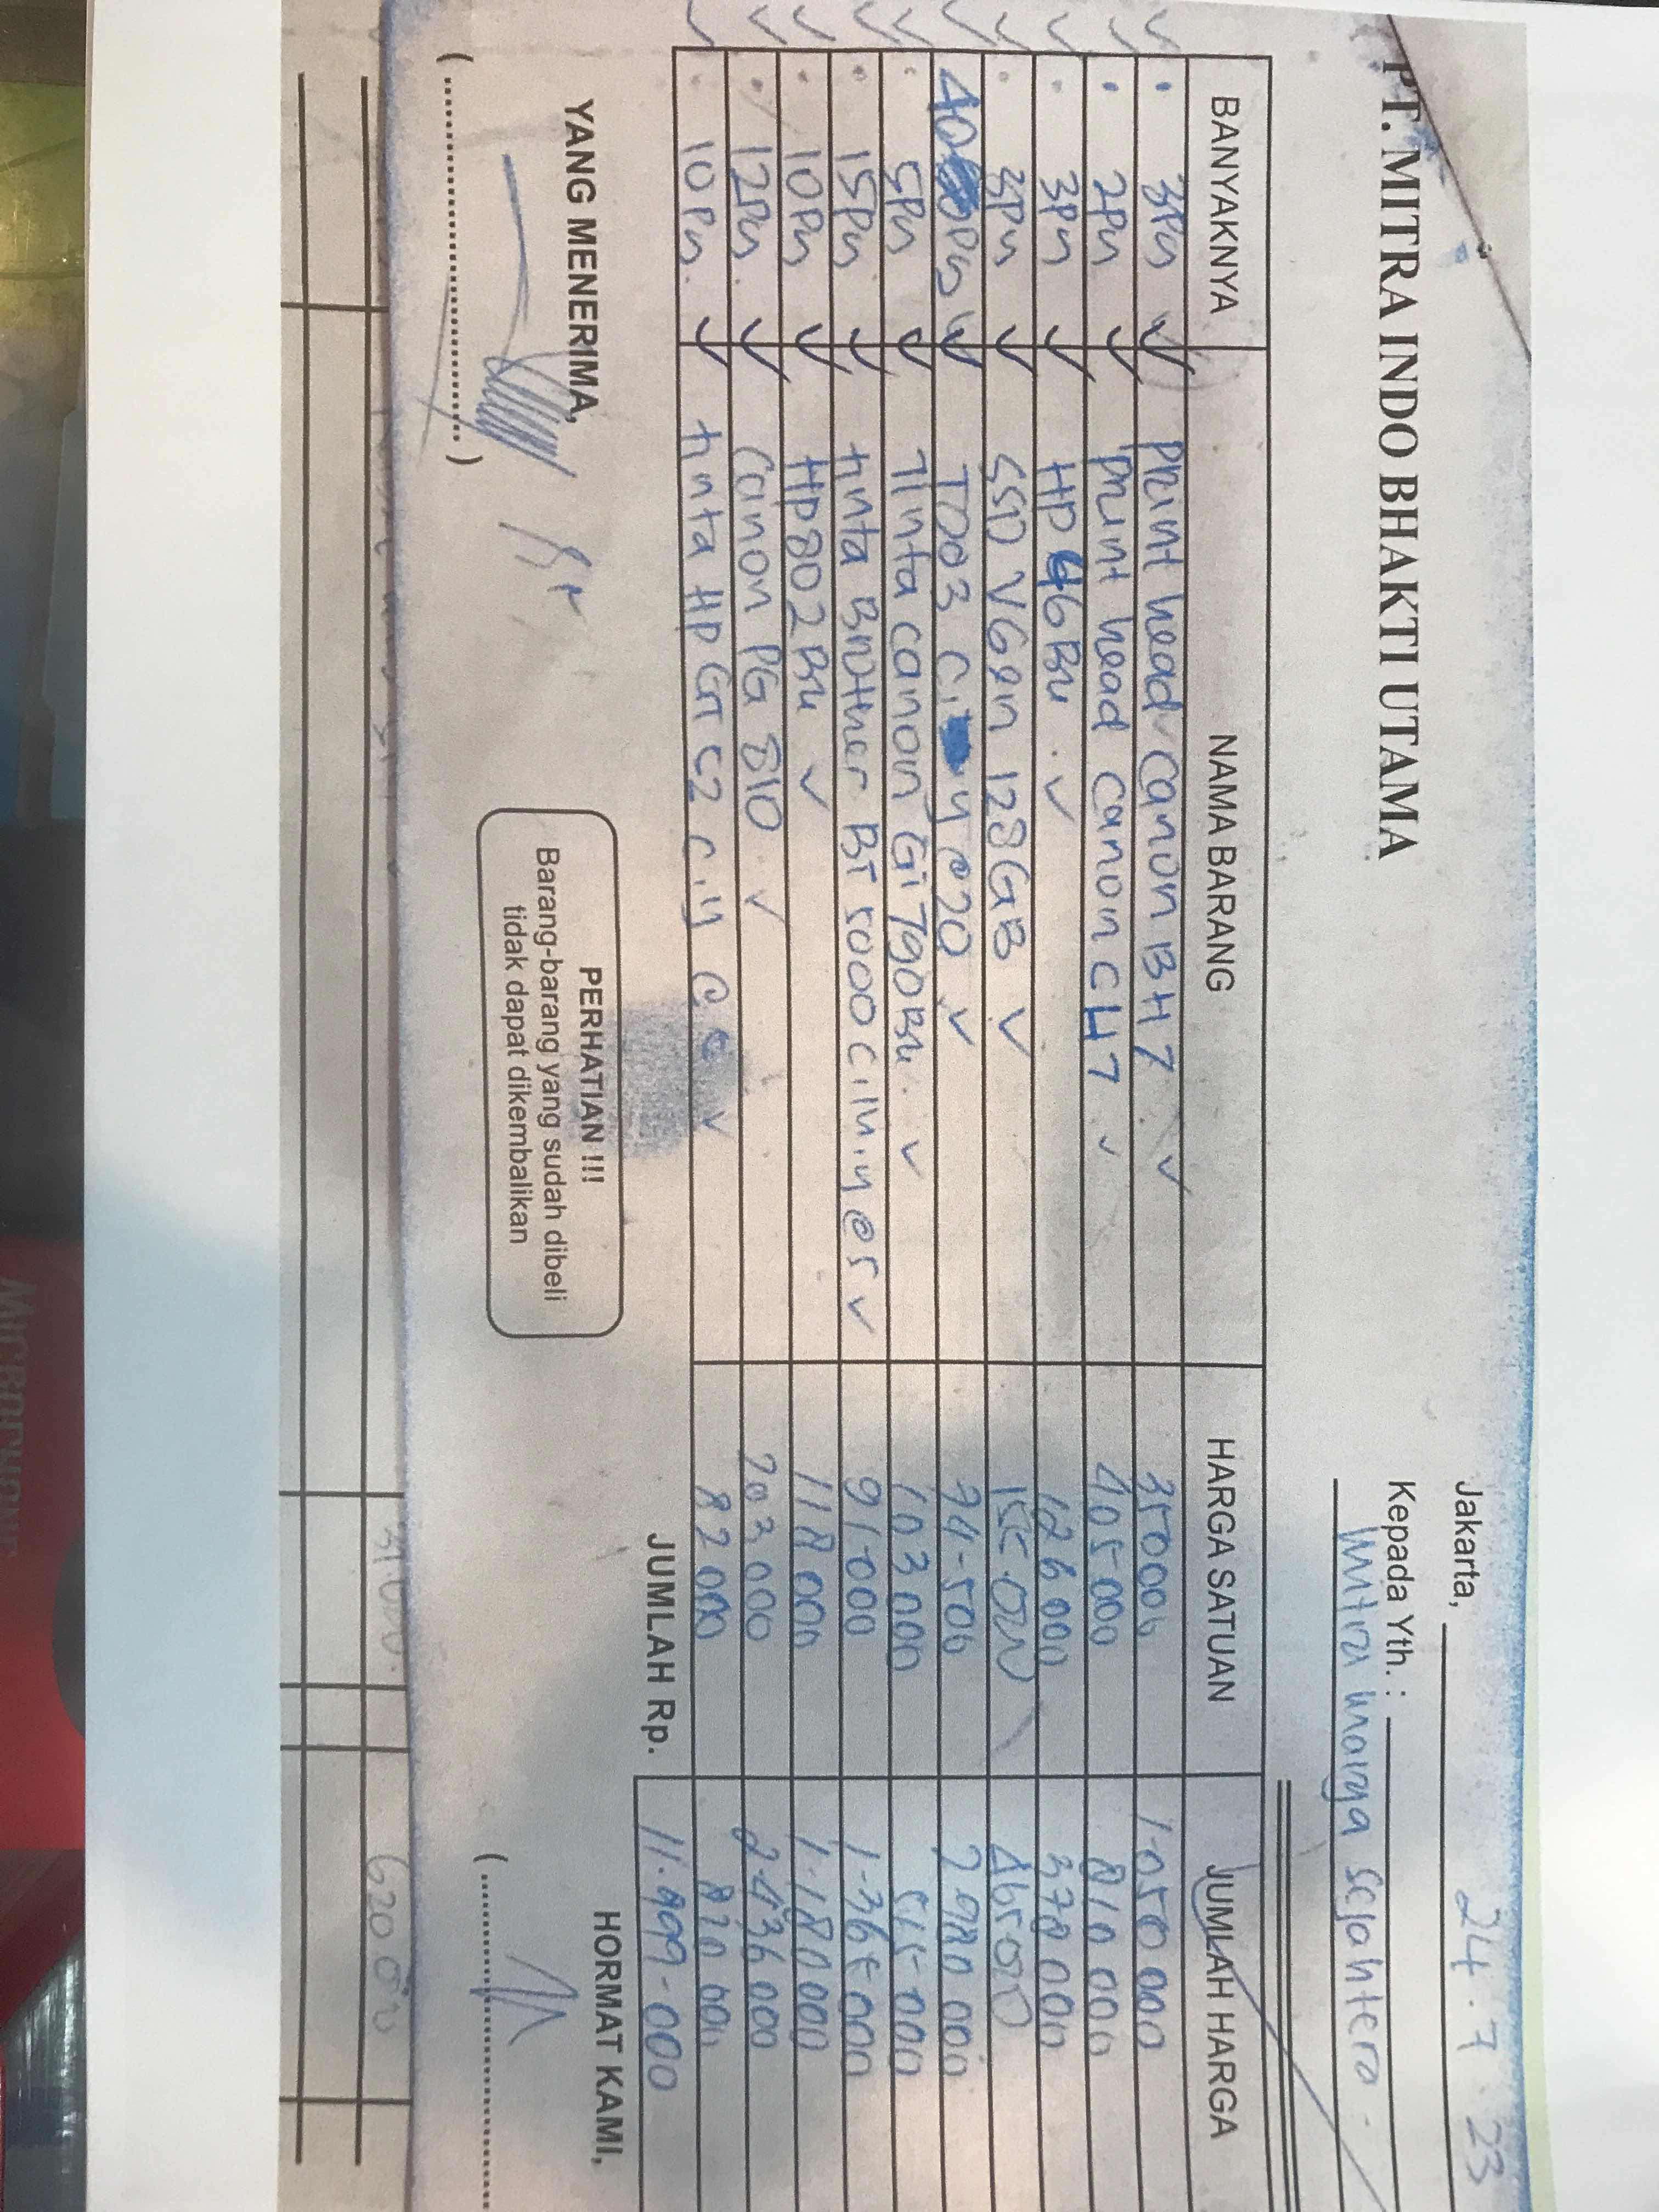 PT. MITRA INDO BHAKTI UTAMA
Jakarta, 24.7.23
Kepada Yth. :
Mitra marga sejahtera
BANYAKNYA NAMA BARANG HARGA SATUAN JUMLAH HARGA
3Pcs Print head canon BH7 350000 1.050 000
2Pcs Print head canon CH7 405 000 810 000
3Pcs HP 46 Bk 126 000 378 000
3Pcs SSD VGen 128GB 155.000 465 000
40 Pcs T003 C, y @20 74.500 2 980 000
5Pcs Tinta canon Gi 790 Bk 103 000 515.000
15Pcs tinta Brother BT 5000 C,m,y @5 91.000 1.365.000
10Pcs HP 802 Bk 118 000 1.180 000
12Pcs Canon PG 810 203 000 2.436 000
10Pcs tinta HP GT 52 C,y @5 82 000 820 000
JUMLAH Rp. 11.999.000
YANG MENERIMA,
PERHATIAN !!!
Barang-barang yang sudah dibeli
tidak dapat dikembalikan
HORMAT KAMI,
31.000 620.000
MICROPHONE